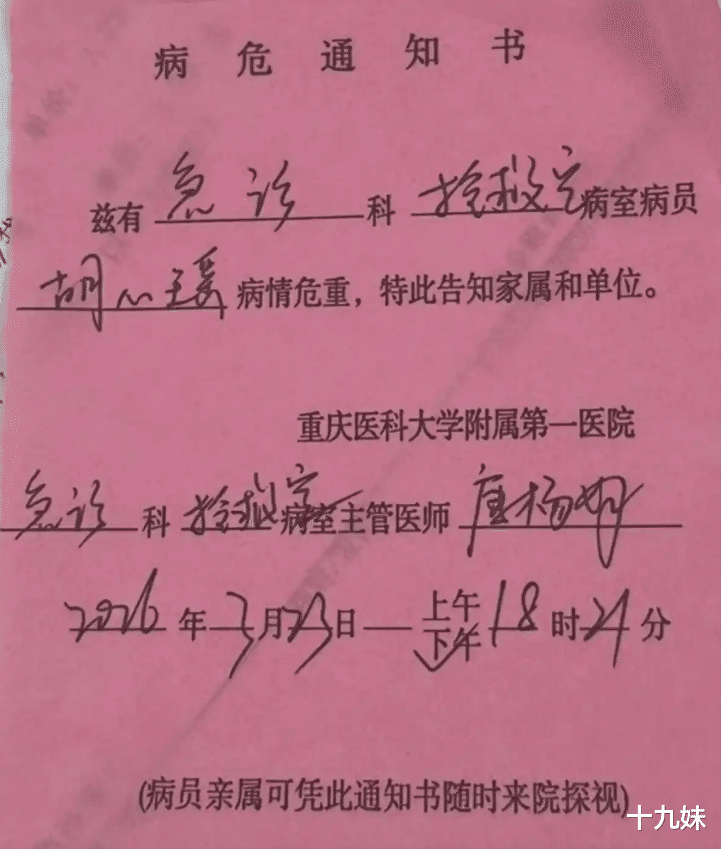 病危通知书
兹有 急诊 科 抢救室 病室病员
胡心瑶 病情危重，特此告知家属和单位。
重庆医科大学附属第一医院
急诊 科 抢救室 病室主管医师 唐杨
2026 年 3 月 23 日 — 上午
下午 18 时 21 分
(病员亲属可凭此通知书随时来院探视)
十九妹